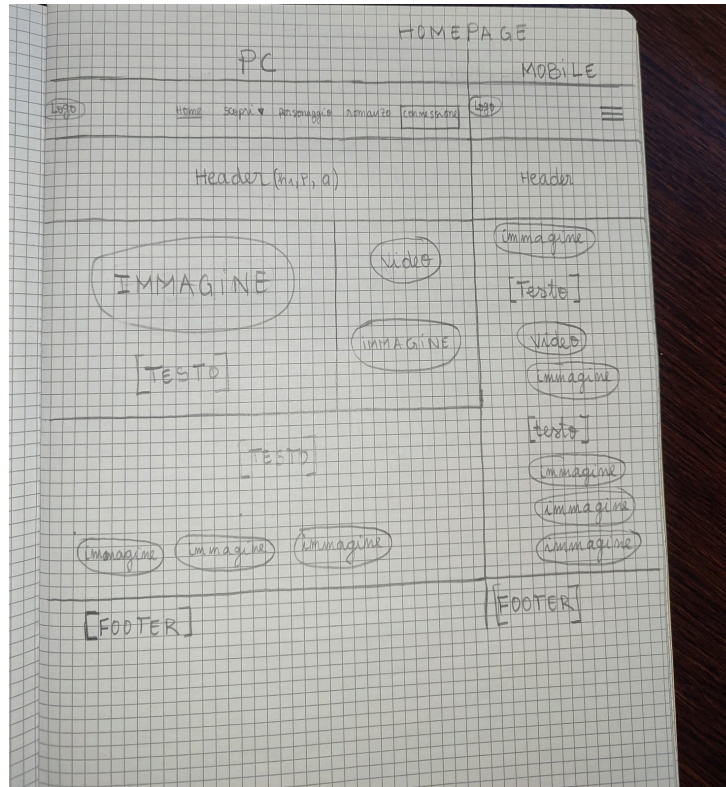 HOMEPAGE
PC
MOBILE
Logo Home scopri ▾ personaggio romanzo connessione
Logo
Header (h1, P, a)
Header
IMMAGINE
[TESTO]
Video
IMMAGINE
[TESTO]
immagine immagine immagine
[FOOTER]
immagine
[Testo]
Video
immagine
[testo]
immagine
immagine
immagine
[FOOTER]